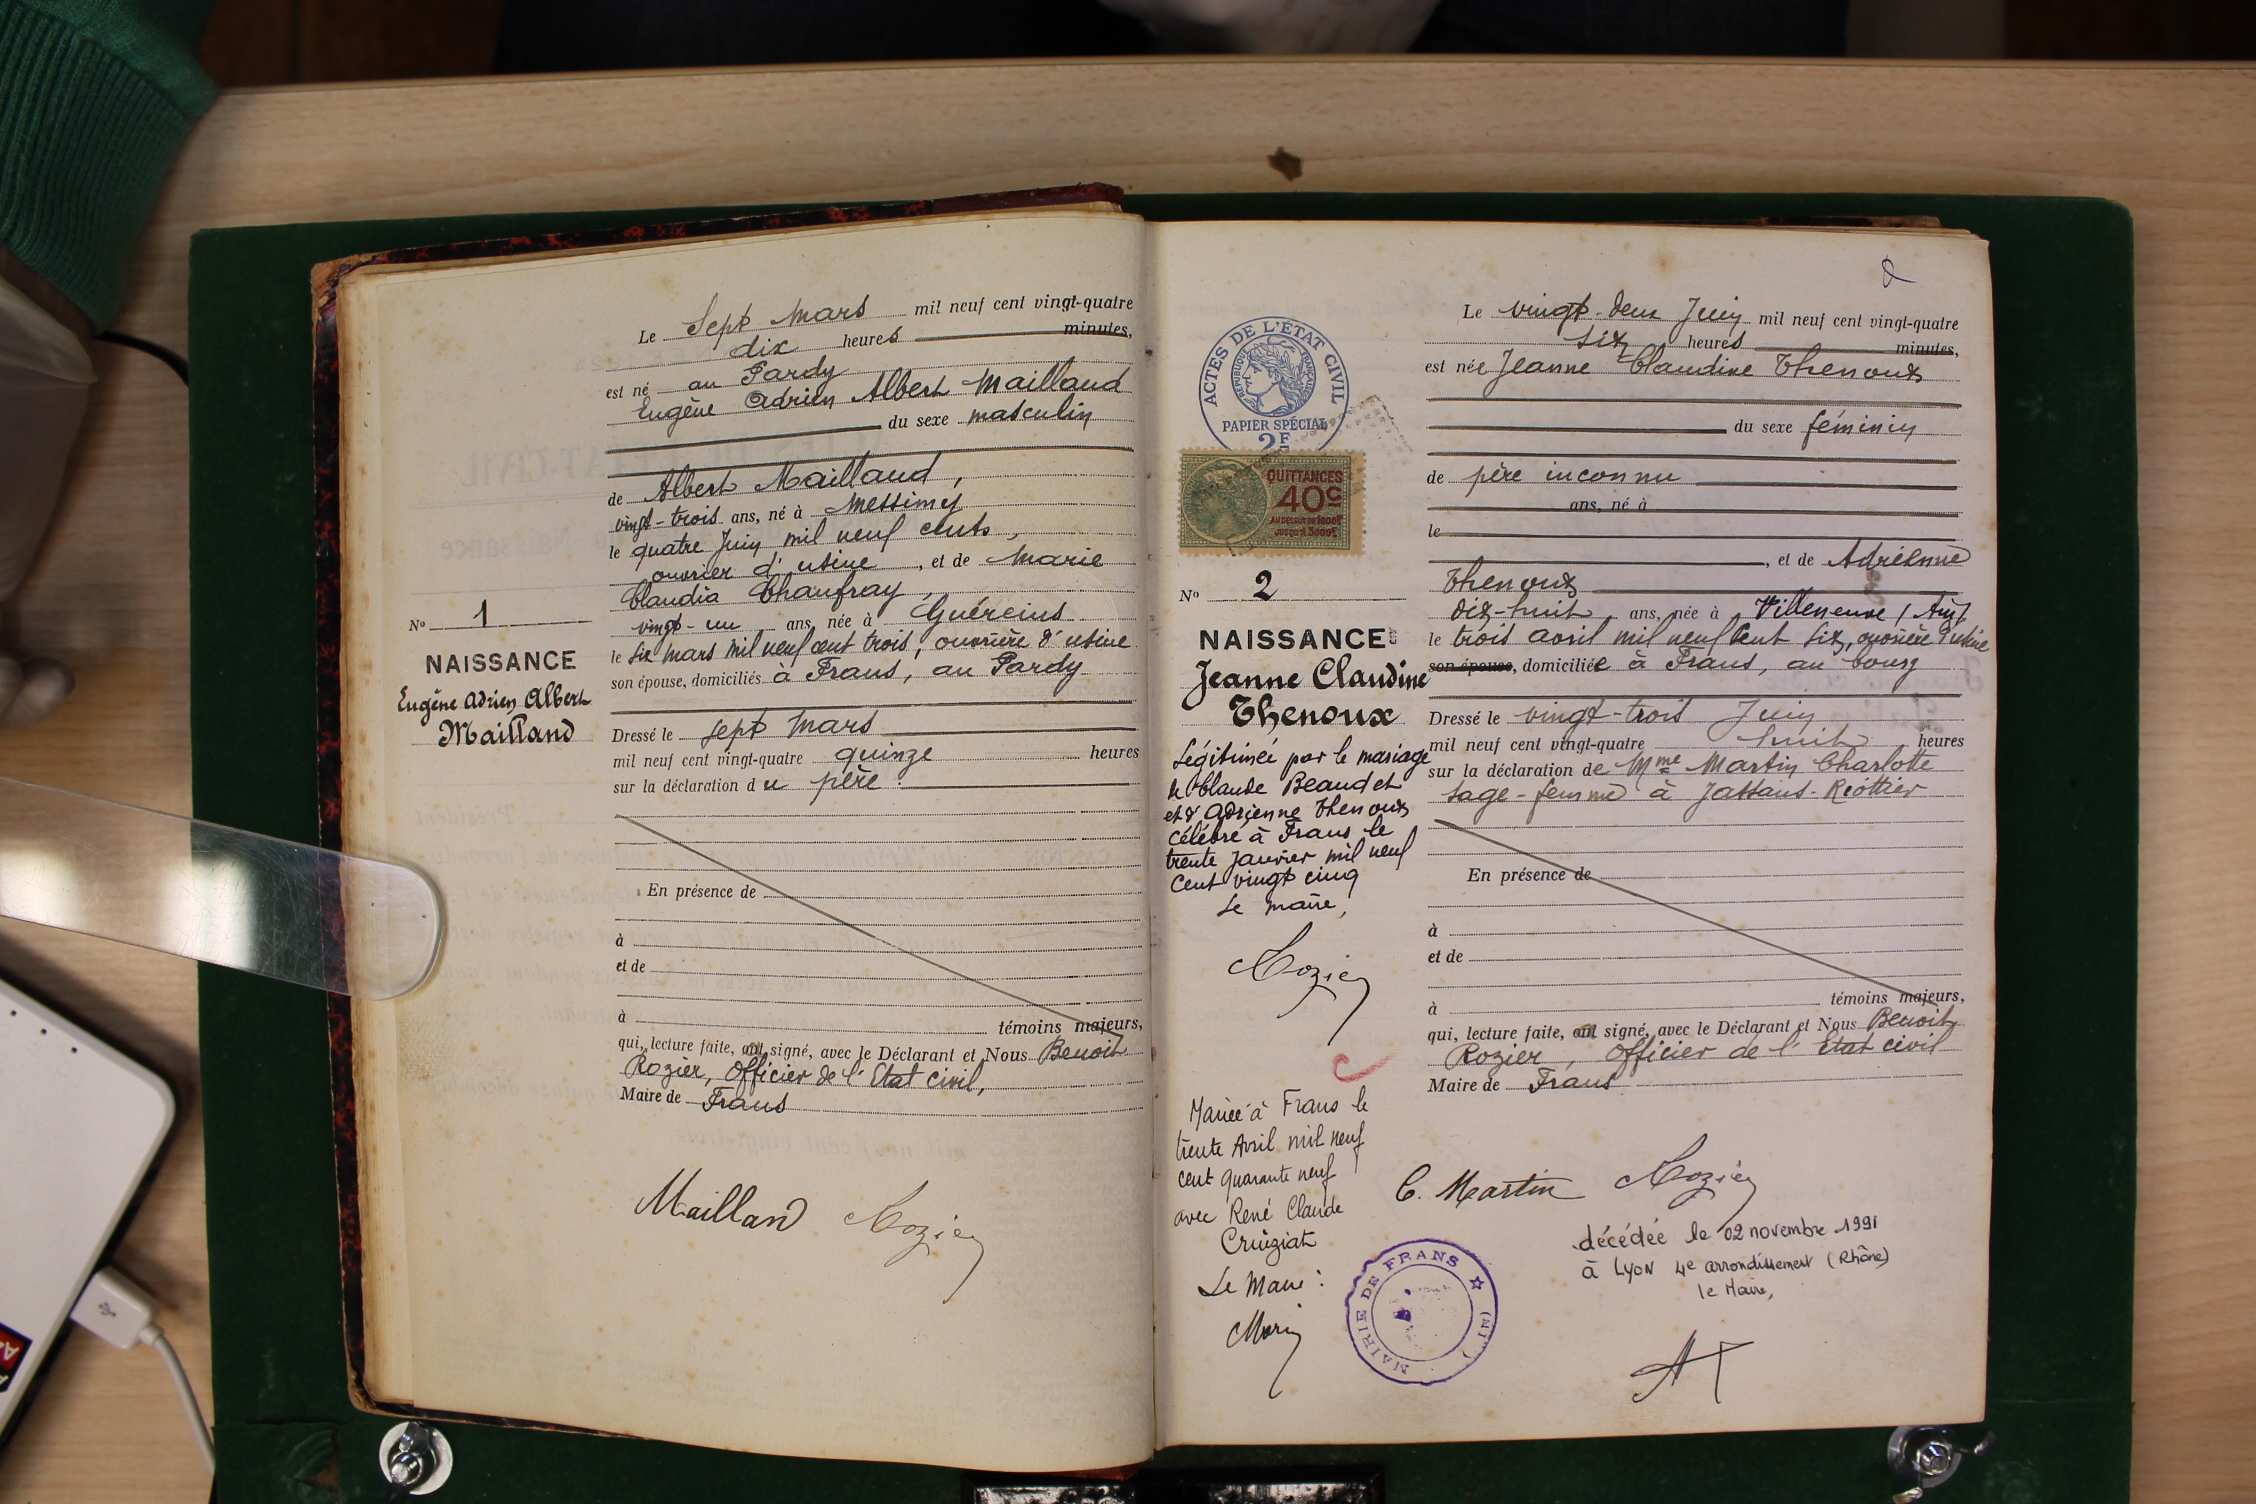 Le Sept Mars mil neuf cent vingt-quatre
dix heures minutes,
est né au Pardy
Eugène Adrien Albert Mailland
du sexe masculin
de Albert Mailland,
vingt-trois ans, né à Messimy
le quatre Juin mil neuf cents,
ouvrier d'usine, et de Marie
Claudia Chanfray,
vingt-un ans, née à Guéreins
le six mars mil neuf cent trois, ouvrière d'usine
son épouse, domiciliés à Frans, au Pardy
Dressé le sept Mars
mil neuf cent vingt-quatre quinze heures
sur la déclaration du père.
En présence de
à
et de
à témoins majeurs,
qui, lecture faite, ont signé, avec le Déclarant et Nous Benoit
Rozier, Officier de l'Etat civil,
Maire de Frans
Mailland Rozier
No 1
NAISSANCE
Eugène Adrien Albert
Mailland
2
ACTES DE L'ÉTAT CIVIL
RÉPUBLIQUE FRANÇAISE
PAPIER SPÉCIAL
2F
QUITTANCES
40c
AU DESSUS DE 1000F
JUSQU'À 3000F
No 2
NAISSANCE
Jeanne Claudine
Thenoux
Légitimée par le mariage
de Claude Beaudet
et d'Adrienne Thenoux
célébré à Frans le
trente Janvier mil neuf
cent vingt cinq
Le maire,
Rozier
C
Mariée à Frans le
trente Avril mil neuf
cent quarante neuf
avec René Claude
Cruiziat
Le Maire :
Le vingt-deux Juin mil neuf cent vingt-quatre
six heures minutes,
est née Jeanne Claudine Thenoux
du sexe féminin
de père inconnu
ans, né à
le
, et de Adrienne
Thenoux
dix-huit ans, née à Villeneuve (Ain)
le trois avril mil neuf cent six, ouvrière d'usine
son épouse, domiciliée à Frans, au bourg
Dressé le vingt-trois Juin
mil neuf cent vingt-quatre huit heures
sur la déclaration de Mme Martin Charlotte
sage-femme à Jassans-Riottier
En présence de
à
et de
à témoins majeurs,
qui, lecture faite, ont signé, avec le Déclarant et Nous Benoit
Rozier, Officier de l'Etat civil
Maire de Frans
C. Martin Rozier
décédée le 02 novembre 1991
à LYON 4e arrondissement (Rhône)
le Maire,
MAIRIE DE FRANS (AIN)